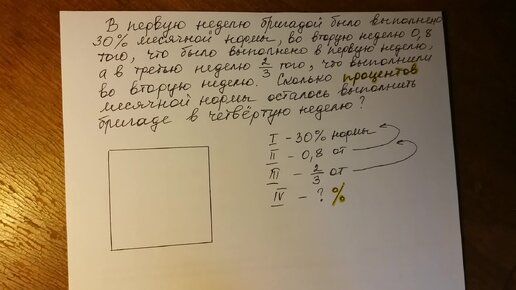 В первую неделю бригадой было выполнено
30% месячной нормы, во вторую неделю 0,8
того, что было выполнено в первую неделю,
а в третью неделю 2/3 того, что выполнили
во вторую неделю. Сколько процентов
месячной нормы осталось выполнить
бригаде в четвёртую неделю?
I - 30% нормы
II - 0,8 от
III - 2/3 от
IV - ? %